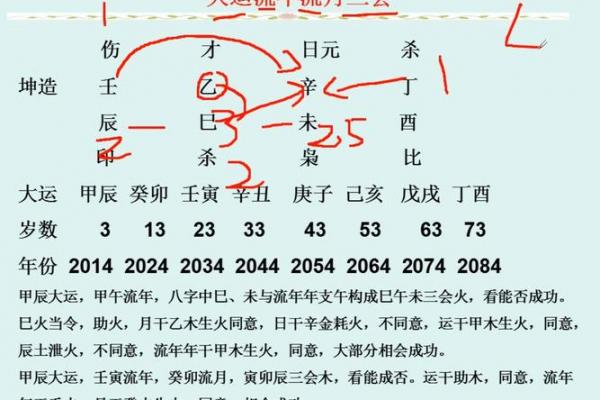 1 大运流年流月三会
伤 才 日元 杀
坤造 壬 乙 辛 丁 1
辰 巳 3 未 2.5 酉
印 2 杀 枭 比
2
大运 甲辰 癸卯 壬寅 辛丑 庚子 己亥 戊戌 丁酉
岁数 3 13 23 33 43 53 63 73
年份 2014 2024 2034 2044 2054 2064 2074 2084
甲辰大运，甲午流年，八字中巳、未与流年年支午构成巳午未三会火，看能否成功。
巳火当令，助火，月干乙木生火同意，日干辛金耗火，不同意，运干甲木生火，同意，
辰土泄火，不同意，流年年干甲木生火，同意，大部分相会成功。
甲辰大运，壬寅流年，癸卯流月，寅卯辰三会木，看能成否。运干助木，同意，流年